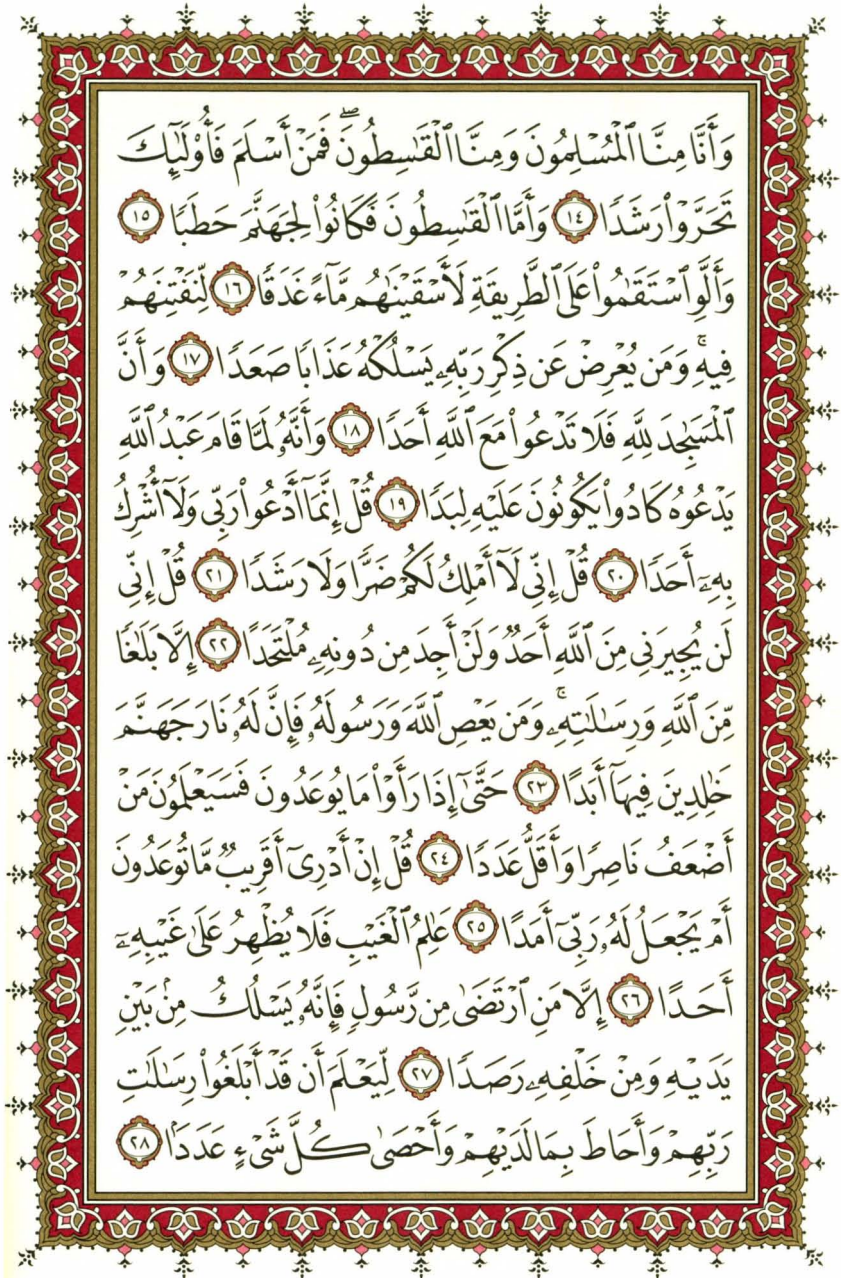 وَأَنَّا مِنَّا ٱلْمُسْلِمُونَ وَمِنَّا ٱلْقَٰسِطُونَۖ فَمَنْ أَسْلَمَ فَأُو۟لَٰٓئِكَ
تَحَرَّوْا۟ رَشَدًا ١٤ وَأَمَّا ٱلْقَٰسِطُونَ فَكَانُوا۟ لِجَهَنَّمَ حَطَبًا ١٥
وَأَلَّوِ ٱسْتَقَٰمُوا۟ عَلَى ٱلطَّرِيقَةِ لَأَسْقَيْنَٰهُم مَّآءً غَدَقًا ١٦ لِّنَفْتِنَهُمْ
فِيهِۚ وَمَن يُعْرِضْ عَن ذِكْرِ رَبِّهِۦ يَسْلُكْهُ عَذَابًا صَعَدًا ١٧ وَأَنَّ
ٱلْمَسَٰجِدَ لِلَّهِ فَلَا تَدْعُوا۟ مَعَ ٱللَّهِ أَحَدًا ١٨ وَأَنَّهُۥ لَمَّا قَامَ عَبْدُ ٱللَّهِ
يَدْعُوهُ كَادُوا۟ يَكُونُونَ عَلَيْهِ لِبَدًا ١٩ قُلْ إِنَّمَآ أَدْعُوا۟ رَبِّى وَلَآ أُشْرِكُ
بِهِۦٓ أَحَدًا ٢٠ قُلْ إِنِّى لَآ أَمْلِكُ لَكُمْ ضَرًّا وَلَا رَشَدًا ٢١ قُلْ إِنِّى
لَن يُجِيرَنِى مِنَ ٱللَّهِ أَحَدٌ وَلَنْ أَجِدَ مِن دُونِهِۦ مُلْتَحَدًا ٢٢ إِلَّا بَلَٰغًا
مِّنَ ٱللَّهِ وَرِسَٰلَٰتِهِۦۚ وَمَن يَعْصِ ٱللَّهَ وَرَسُولَهُۥ فَإِنَّ لَهُۥ نَارَ جَهَنَّمَ
خَٰلِدِينَ فِيهَآ أَبَدًا ٢٣ حَتَّىٰٓ إِذَا رَأَوْا۟ مَا يُوعَدُونَ فَسَيَعْلَمُونَ مَنْ
أَضْعَفُ نَاصِرًا وَأَقَلُّ عَدَدًا ٢٤ قُلْ إِنْ أَدْرِىٓ أَقَرِيبٌ مَّا تُوعَدُونَ
أَمْ يَجْعَلُ لَهُۥ رَبِّىٓ أَمَدًا ٢٥ عَٰلِمُ ٱلْغَيْبِ فَلَا يُظْهِرُ عَلَىٰ غَيْبِهِۦٓ
أَحَدًا ٢٦ إِلَّا مَنِ ٱرْتَضَىٰ مِن رَّسُولٍ فَإِنَّهُۥ يَسْلُكُ مِنۢ بَيْنِ
يَدَيْهِ وَمِنْ خَلْفِهِۦ رَصَدًا ٢٧ لِّيَعْلَمَ أَن قَدْ أَبْلَغُوا۟ رِسَٰلَٰتِ
رَبِّهِمْ وَأَحَاطَ بِمَا لَدَيْهِمْ وَأَحْصَىٰ كُلَّ شَىْءٍ عَدَدَۢا ٢٨